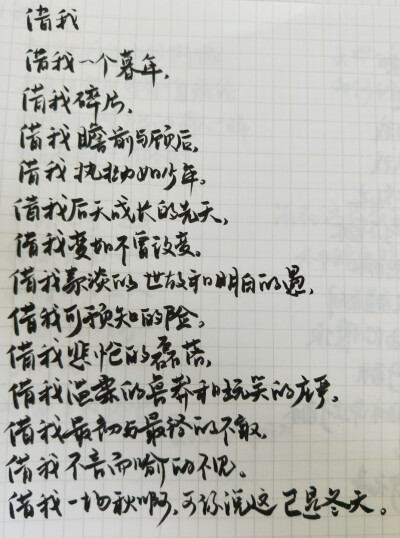 借我
借我一个暮年,
借我碎片,
借我瞻前与顾后,
借我执拗如少年。
借我后天成长的先天,
借我变如不曾改变。
借我素淡的世故和明白的愚,
借我可预知的险。
借我悲怆的磊落,
借我温柔的鲁莽和玩笑的庄严。
借我最初与最终的不敢,
借我不言而喻的不见。
借我一场秋啊,可你说这已是冬天。